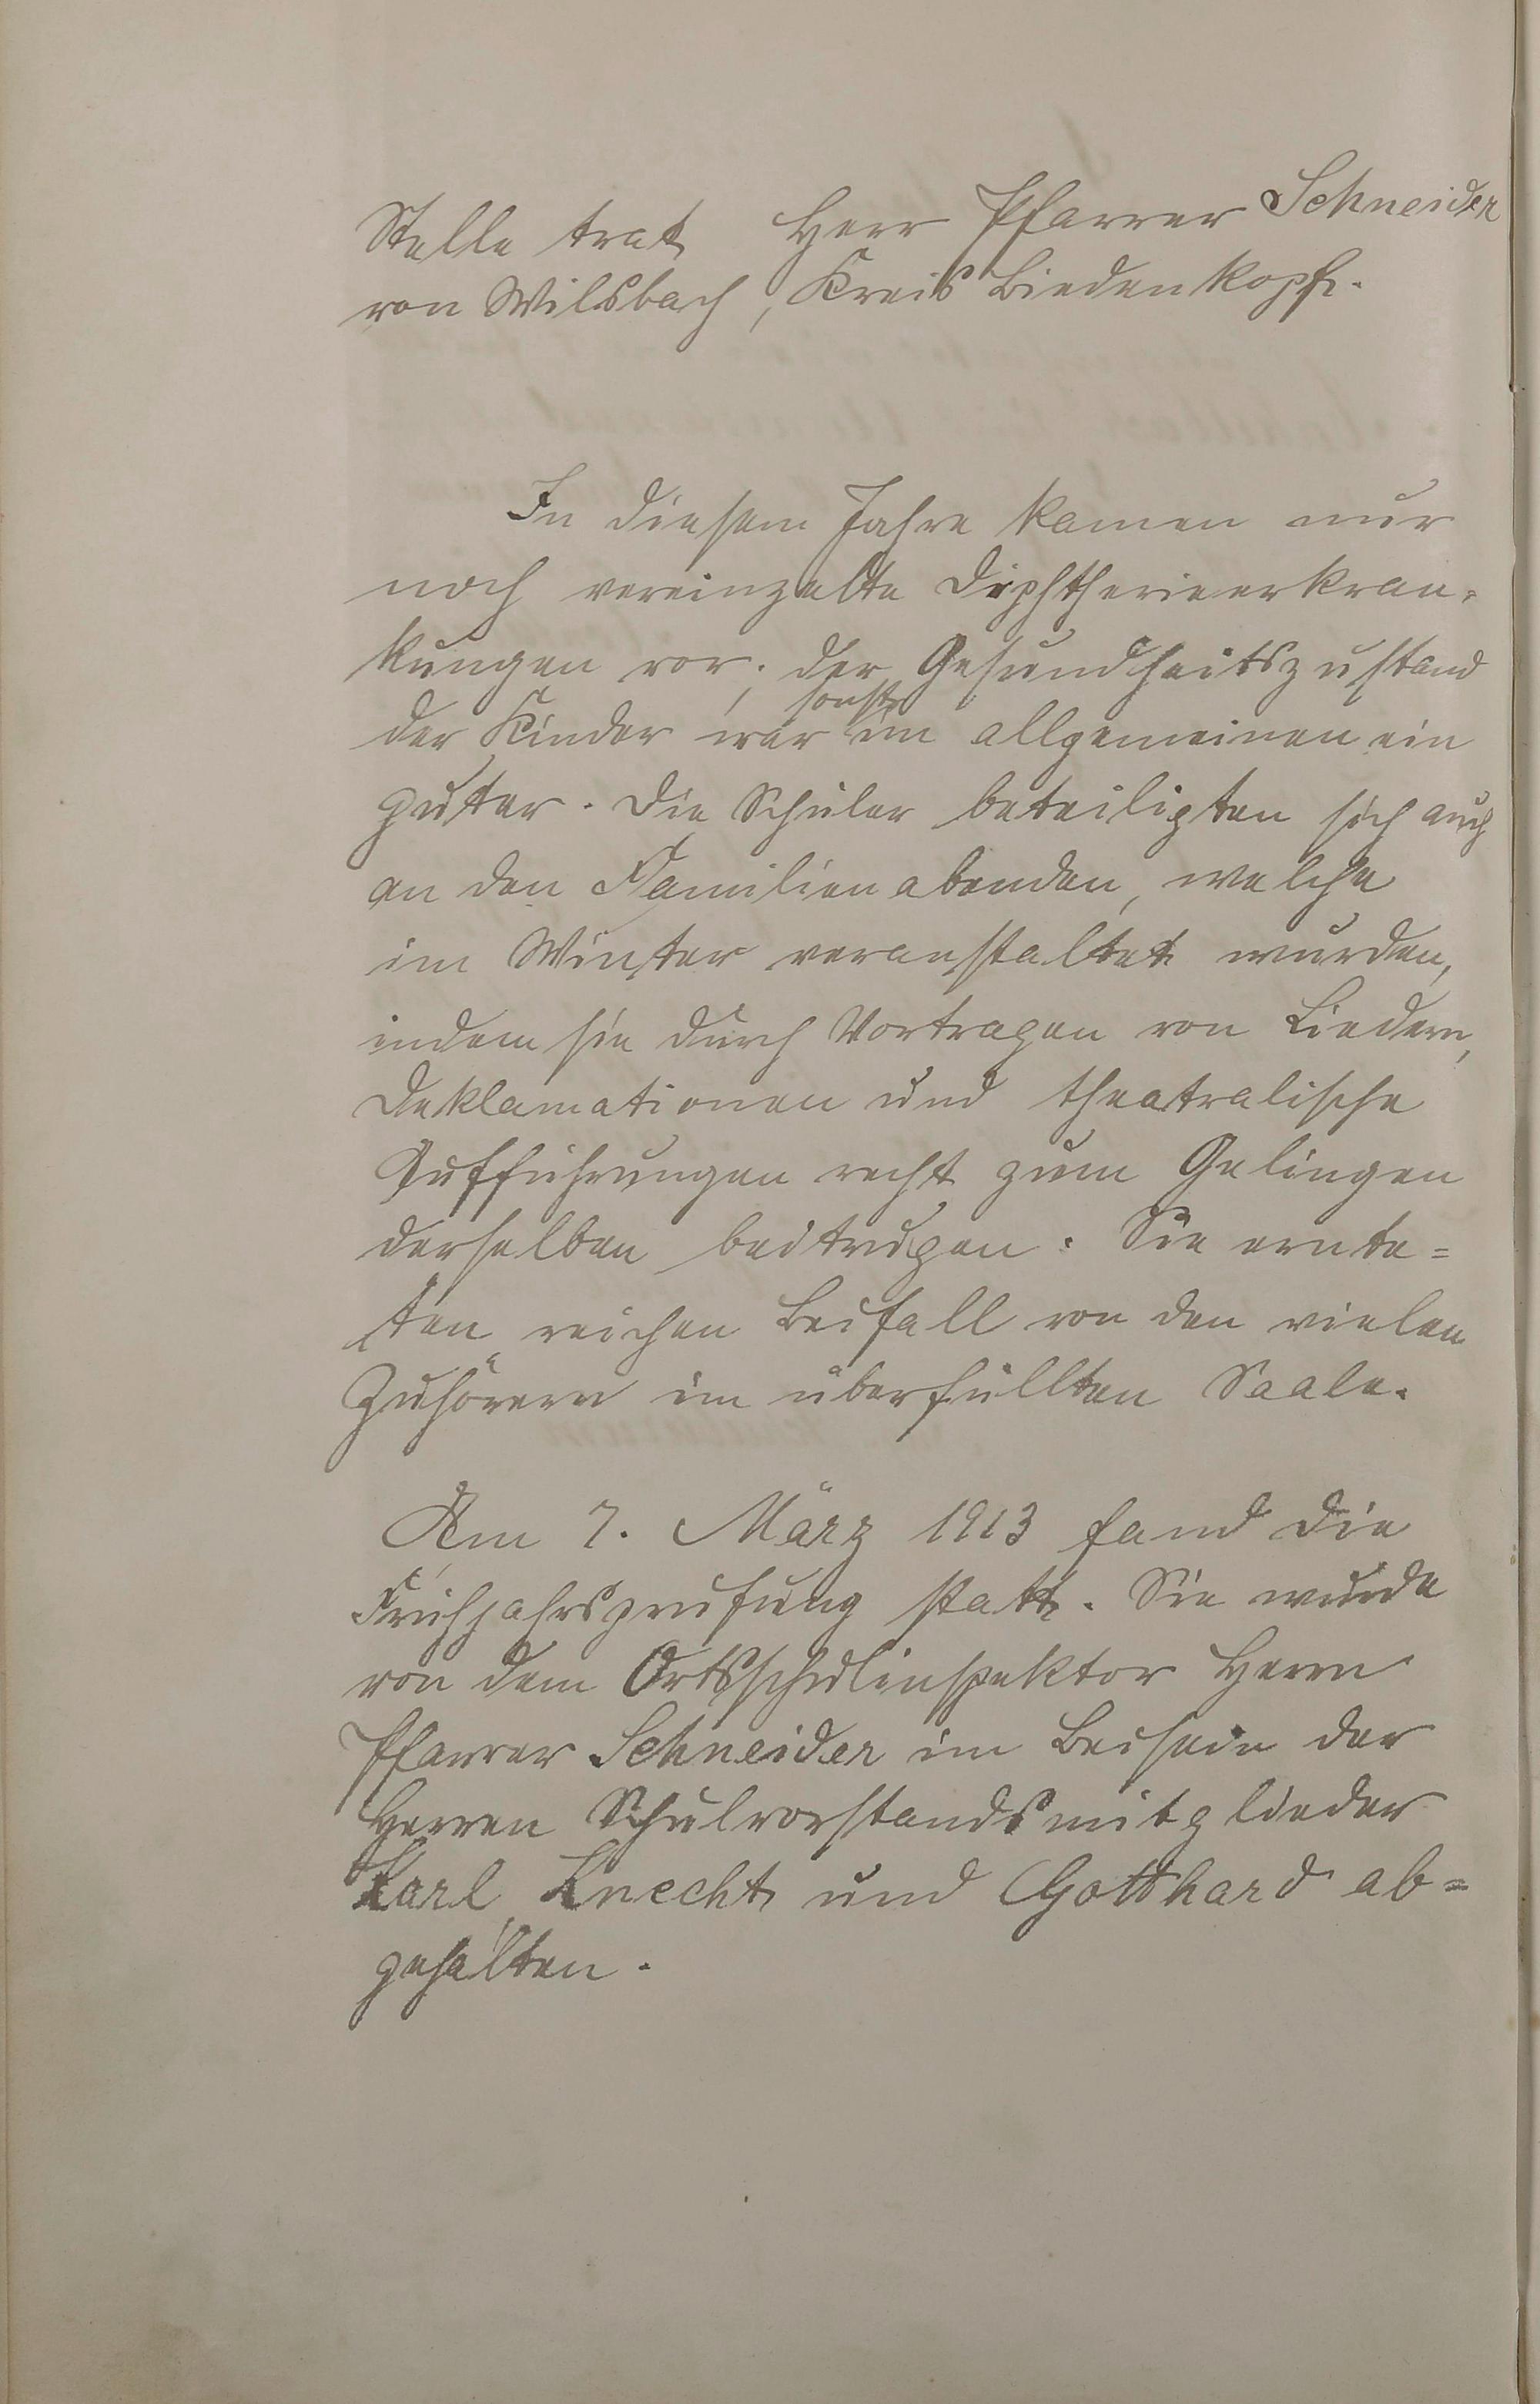 Stelle trat Herr Pfarrer Schneider
von Wilsbach, Kreis Biedenkopf.
In diesem Jahre kamen nur
noch vereinzelte Diphtherieerkran-
kungen vor; der Gesundheitszustand
der Kinder war sonst im allgemeinen ein
guter. Die Schüler beteiligten sich auch
an den Familienabenden, welche
im Winter veranstaltet wurden,
indem sie durch Vortragen von Liedern,
Deklamationen und theatralische
Aufführungen recht zum Gelingen
derselben beitrugen. Sie ernte=
ten reichen Beifall von den vielen
Zuhörern im überfüllten Saale.
Am 7. März 1913 fand die
Frühjahrsprüfung statt. Sie wurde
von dem Ortsschulinspektor Herrn
Pfarrer Schneider im Beisein der
Herren Schulvorstandsmitglieder
Karl Knecht und Gotthard ab=
gehalten.